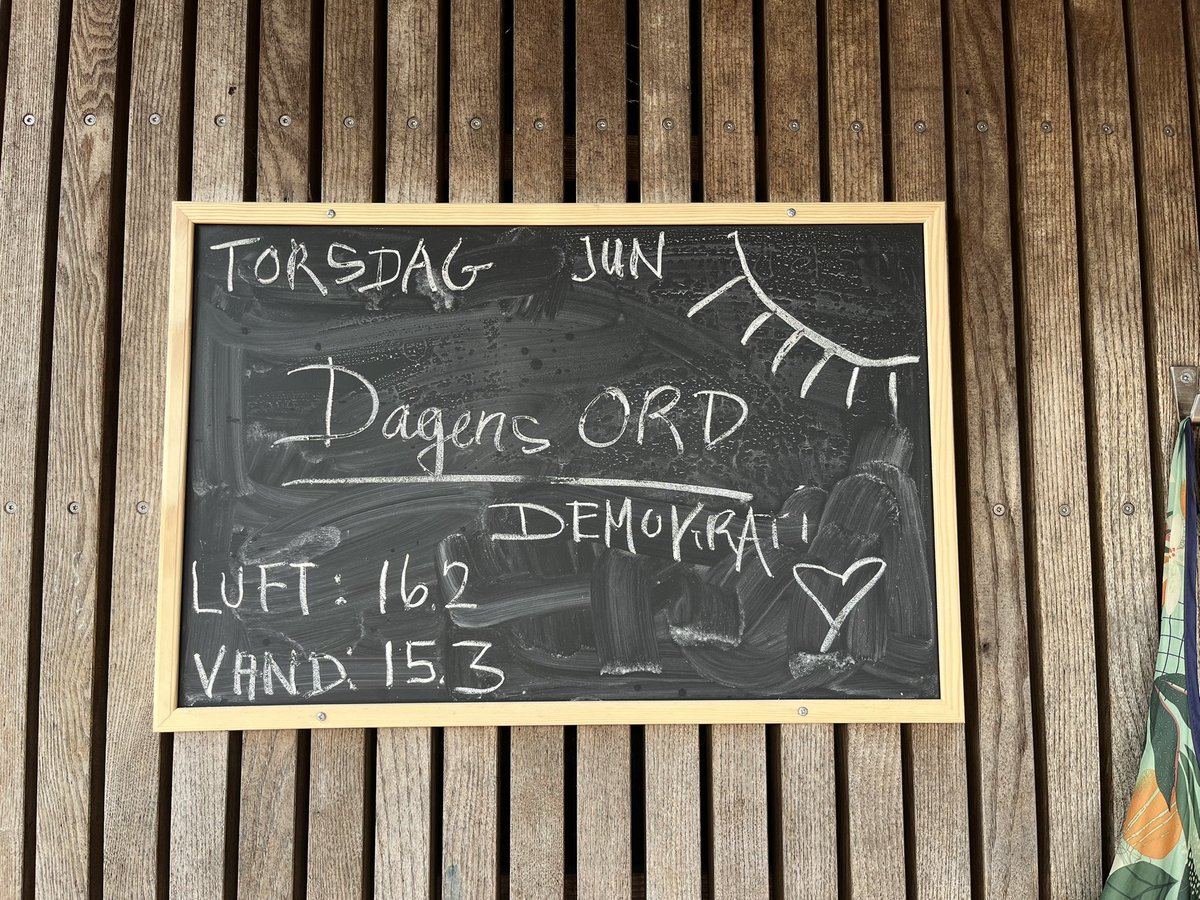 TORSDAG JUN
Dagens ORD
DEMOKRATI
LUFT: 16.2
VAND: 15.3